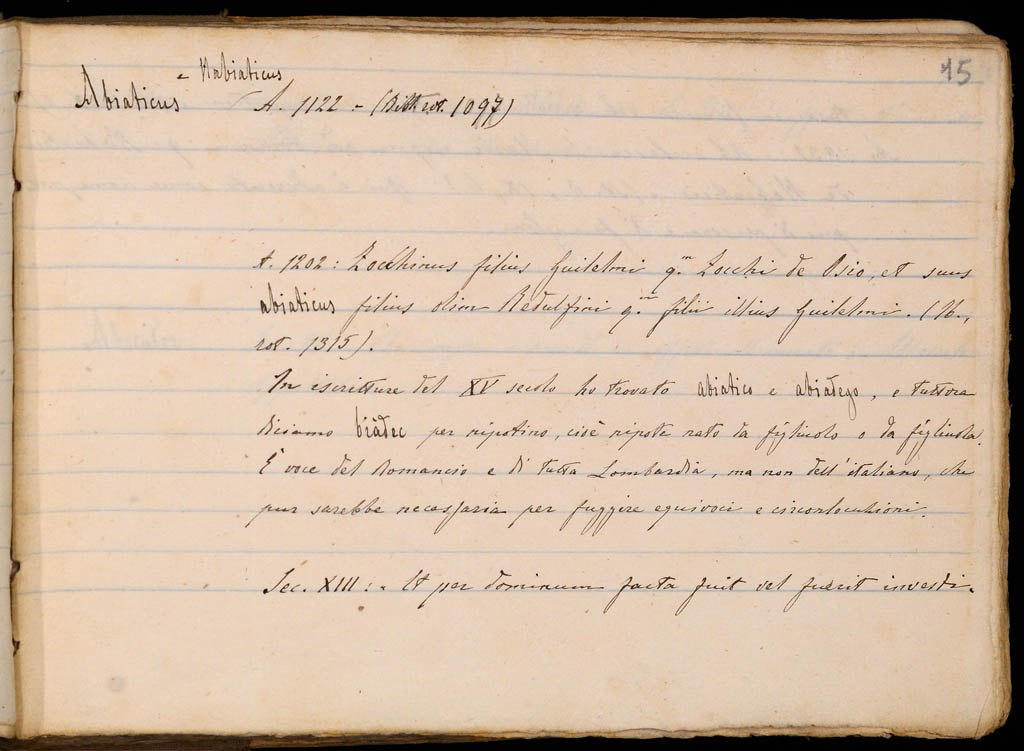 15
Abiaticus - Nabiaticus
A. 1122 - (Ditt rot. 1097)
A. 1202: Zochinus filius Guilelmi q.m Zocchi de Osio, et suus
abiaticus filius olim Redulfini q.m filii illius Guilelmi. (Ib.,
rot. 1315).
In iscritture del XV secolo ho trovato abiatico e abiadego, e tuttora
diciamo biàdec per nipotino, cioè nipote nato da figliuolo o da figliuola.
È voce del Romancio e di tutta Lombardia, ma non dell'italiano, che
pur sarebbe necessaria per fuggire equivoci e circonlocuzioni.
Sec. XIII: - Et per dominum facta fuit vel fuerit investi-